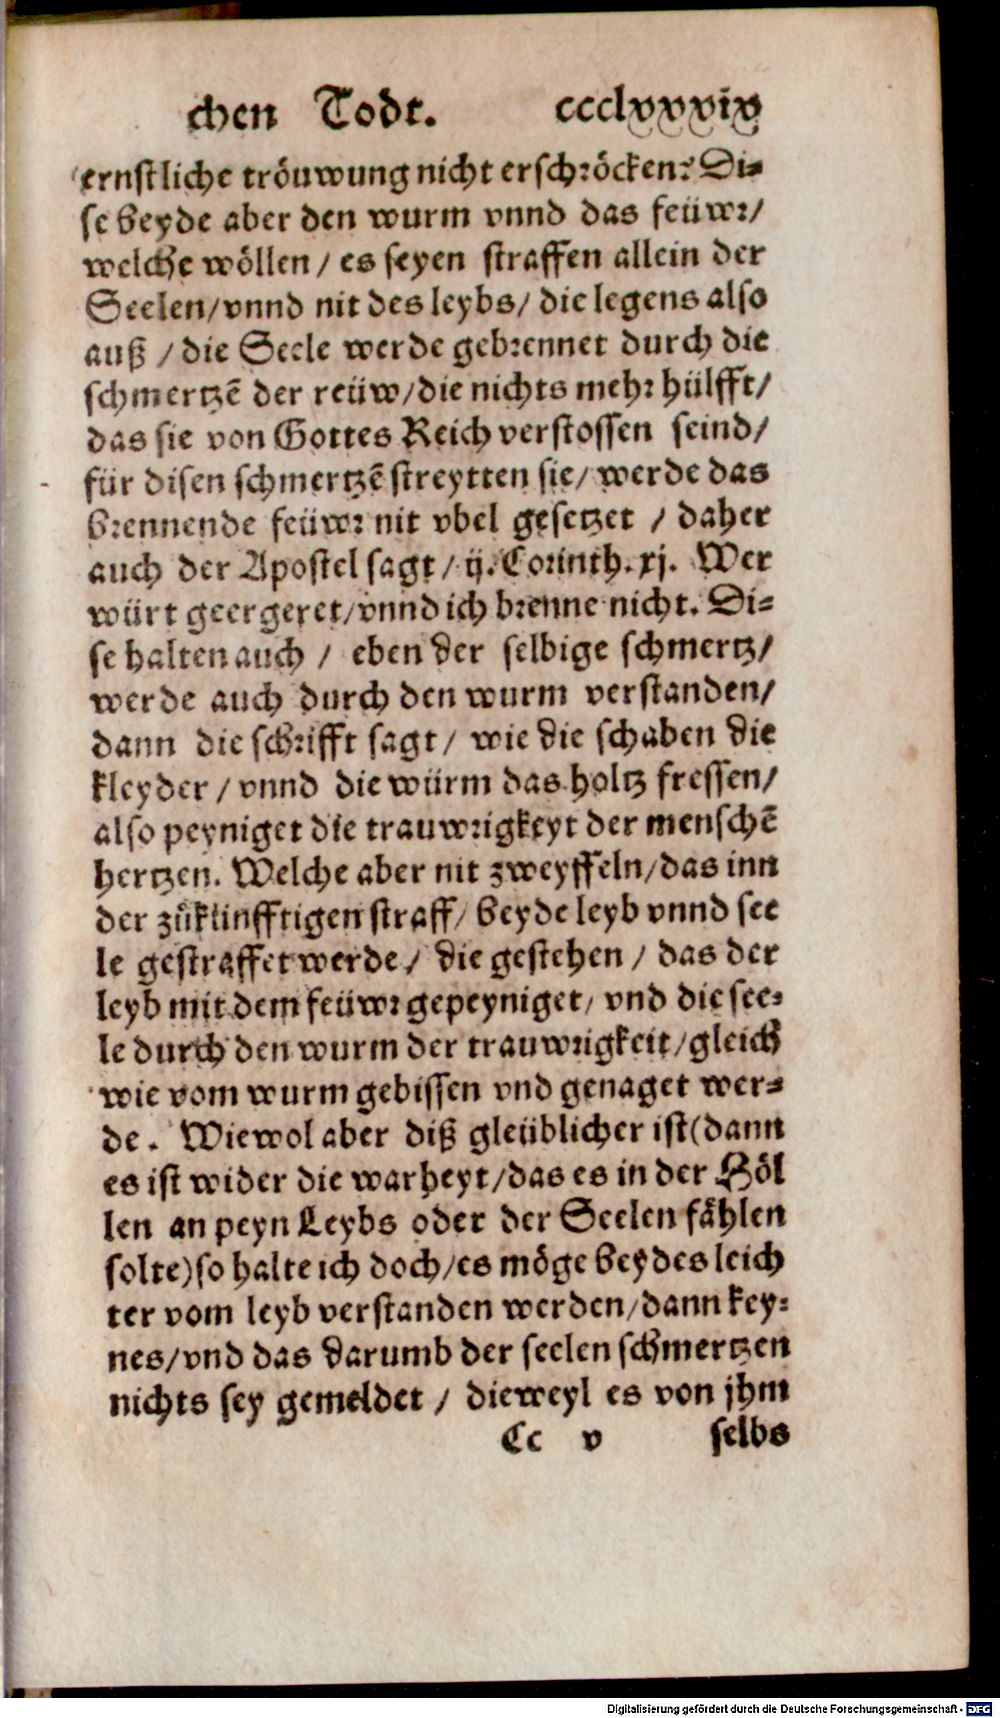 chen Todt. ccclxxxix
ernstliche tröuwung nicht erschröcken? Di-
se beyde aber den wurm vnnd das feüwr/
welche wöllen / es seyen straffen allein der
Seelen/vnnd nit des leybs/ die legens also
auß / die Seele werde gebrennet durch die
schmertzē der reüw/die nichts mehr hülfft/
das sie von Gottes Reich verstossen seind/
für disen schmertzē streytten sie/ werde das
brennende feüwr nit vbel gesetzet / daher
auch der Apostel sagt/ ij. Corinth. xj. Wer
würt geergeret/vnnd ich brenne nicht. Di-
se halten auch / eben der selbige schmertz/
werde auch durch den wurm verstanden/
dann die schrifft sagt/ wie die schaben die
kleyder / vnnd die würm das holtz fressen/
also peyniget die trauwrigkeyt der menschē
hertzen. Welche aber nit zweyffeln/das inn
der zůkünfftigen straff/ beyde leyb vnnd see
le gestraffet werde/ die gestehen / das der
leyb mit dem feüwr gepeyniget/ vnd die see-
le durch den wurm der trauwrigkeit/gleich
wie vom wurm gebissen vnd genaget wer-
de. Wiewol aber diß gleüblicher ist(dann
es ist wider die warheyt/das es in der Höl
len an peyn Leybs oder der Seelen fählen
solte)so halte ich doch/es möge beydes leich
ter vom leyb verstanden werden/dann key-
nes/vnd das darumb der seelen schmertzen
nichts sey gemeldet / dieweyl es von jhm
Cc v selbs
Digitalisierung gefördert durch die Deutsche Forschungsgemeinschaft - DFG